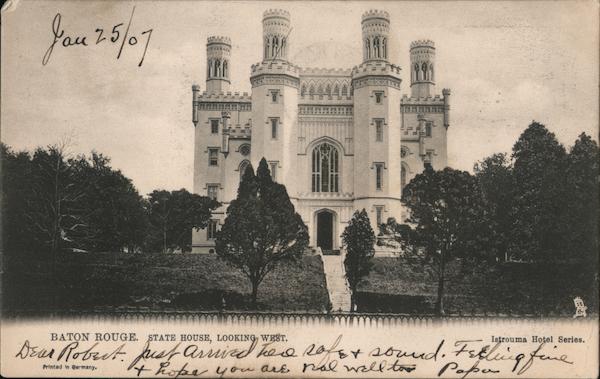 Jan 25/07
BATON ROUGE. STATE HOUSE, LOOKING WEST.
Istrouma Hotel Series.
Printed in Germany.
Dear Robert. Just Arrived here safe & sound. Feeling fine
& hope you are well Papa